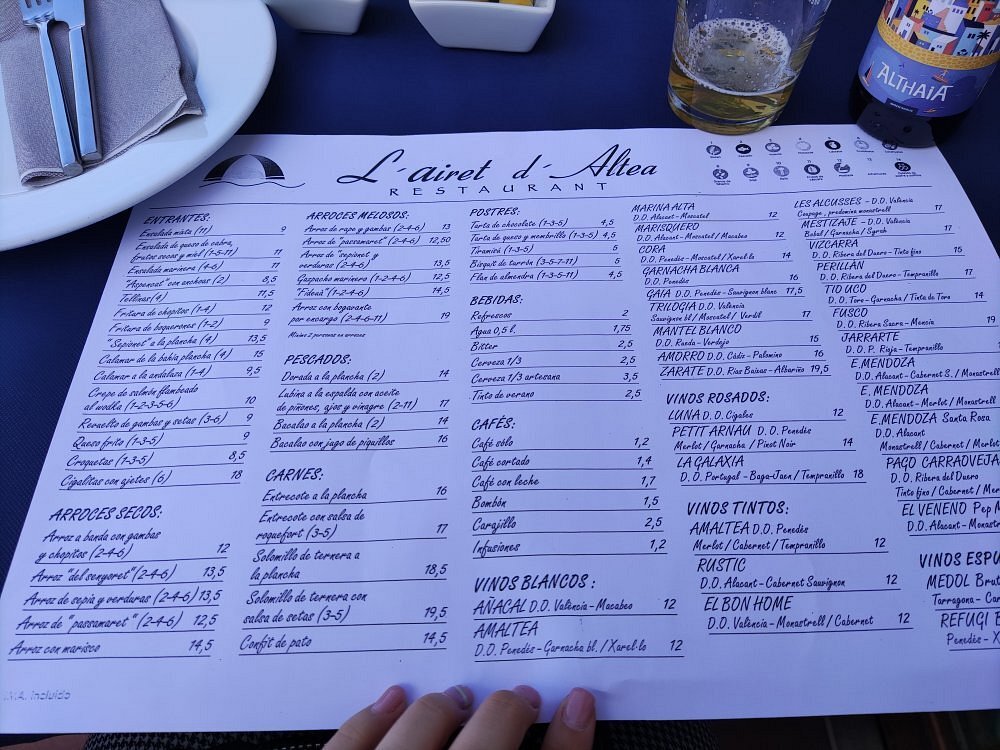 ALTHAIA
L'airet d'Altea
RESTAURANT
ENTRANTES:
Ensalada mixta (11) 9
Ensalada de queso de cabra,
frutos secos y miel (1-5-11) 11
Ensalada marinera (4-6) 11
"Aspencat" con anchoas (2) 8,5
Tellinas (4) 11,5
Fritura de chopitos (1-4) 12
Fritura de boquerones (1-2) 9
"Sepionet" a la plancha (4) 13,5
Calamar de la bahía plancha (4) 15
Calamar a la andaluza (1-4) 9,5
Crepe de salmón flambeado
al wodka (1-2-3-5-6) 10
Revuelto de gambas y setas (3-6) 9
Queso frito (1-3-5) 9
Croquetas (1-3-5) 8,5
Cigalitas con ajetes (6) 18
ARROCES SECOS:
Arroz a banda con gambas
y chopitos (2-4-6) 12
Arroz "del senyoret" (2-4-6) 13,5
Arroz de sepia y verduras (2-4-6) 13,5
Arroz de "passamaret" (2-4-6) 12,5
Arroz con marisco 14,5
I.V.A. incluido
ARROCES MELOSOS:
Arros de rapo y gambas (2-4-6) 13
Arroz de "passamaret" (2-4-6) 12,50
Arroz de "sepionet" y
verduras (2-4-6) 13,5
Gaspacho marinero (1-2-4-6) 12,5
"Fideuà" (1-2-4-6) 14,5
Arroz con bogavante
por encargo (2-4-6-11) 19
Mínimo 2 personas en arroces
PESCADOS:
Dorada a la plancha (2) 14
Lubina a la espalda con aceite
de piñones, ajos y vinagre (2-11) 17
Bacalao a la plancha (2) 14
Bacalao con jugo de piquillos 16
CARNES:
Entrecote a la plancha 16
Entrecote con salsa de
roquefort (3-5) 17
Solomillo de ternera a
la plancha 18,5
Solomillo de ternera con
salsa de setas (3-5) 19,5
Confit de pato 14,5
POSTRES:
Tarta de chocolate (1-3-5) 4,5
Tarta de queso y membrillo (1-3-5) 4,5
Tiramisú (1-3-5) 5
Bisquit de turrón (3-5-7-11) 5
Flan de almendra (1-3-5-11) 4,5
BEBIDAS:
Refrescos 2
Agua 0,5 l. 1,75
Bitter 2,5
Cerveza 1/3 2,5
Cerveza 1/3 artesana 3,5
Tinto de verano 2,5
CAFÉS:
Café sólo 1,2
Café cortado 1,4
Café con leche 1,7
Bombón 1,5
Carajillo 2,5
Infusiones 1,2
VINOS BLANCOS:
AÑACAL D.O. València - Macabeo 12
AMALTEA
D.O. Penedès - Garnacha bl. / Xarel·lo 12
MARINA ALTA
D.O. Alacant - Moscatel 12
MARISQUERO
D.O. Alacant - Moscatel / Macabeo 12
CORA
D.O. Penedès - Moscatel / Xarel·lo 14
GARNACHA BLANCA
D.O. Penedès 16
GAIA D.O. Penedès - Sauvignon blanc 17,5
TRILOGIA D.O. València
Sauvignon bl / Moscatel / Verdil 17
MANTEL BLANCO
D.O. Rueda - Verdejo 15
AMORRO D.O. Cádiz - Palomino 16
ZARATE D.O. Rias Baixas - Albariño 19,5
VINOS ROSADOS:
LUNA D.O. Cigales 12
PETIT ARNAU D.O. Penedès
Merlot / Garnacha / Pinot Noir 14
LA GALAXIA
D.O. Portugal - Baga-Jaen / Tempranillo 18
VINOS TINTOS:
AMALTEA D.O. Penedès
Merlot / Cabernet / Tempranillo 12
RUSTIC
D.O. Alacant - Cabernet Sauvignon 12
EL BON HOME
D.O. València - Monastrell / Cabernet 12
LES ALCUSSES - D.O. València
Coupage, predomina monastrell 17
MESTIZAJE - D.O. València
Bobal / Garnacha / Syrah 17
VIZCARRA
D.O. Ribera del Duero - Tinto fino 15
PERILLÁN
D.O. Ribera del Duero - Tempranillo 17
TIO UCO
D.O. Toro - Garnacha / Tinta de Toro 14
FUSCO
D.O. Ribera Sacra - Mencía 19
JARRARTE
D.O. P. Rioja - Tempranillo 1
E.MENDOZA
D.O. Alacant - Cabernet S. / Monastrell
E.MENDOZA
D.O. Alacant - Merlot / Monastrell
E.MENDOZA Santa Rosa
D.O. Alacant
Monastrell / Cabernet / Merlot
PAGO CARRAOVEJA
D.O. Ribera del Duero
Tinto fino / Cabernet / Mer
EL VENENO Pep M
D.O. Alacant - Monast
VINOS ESPU
MEDOL Brut
Tarragona - Car
REFUGI B
Penedès - X